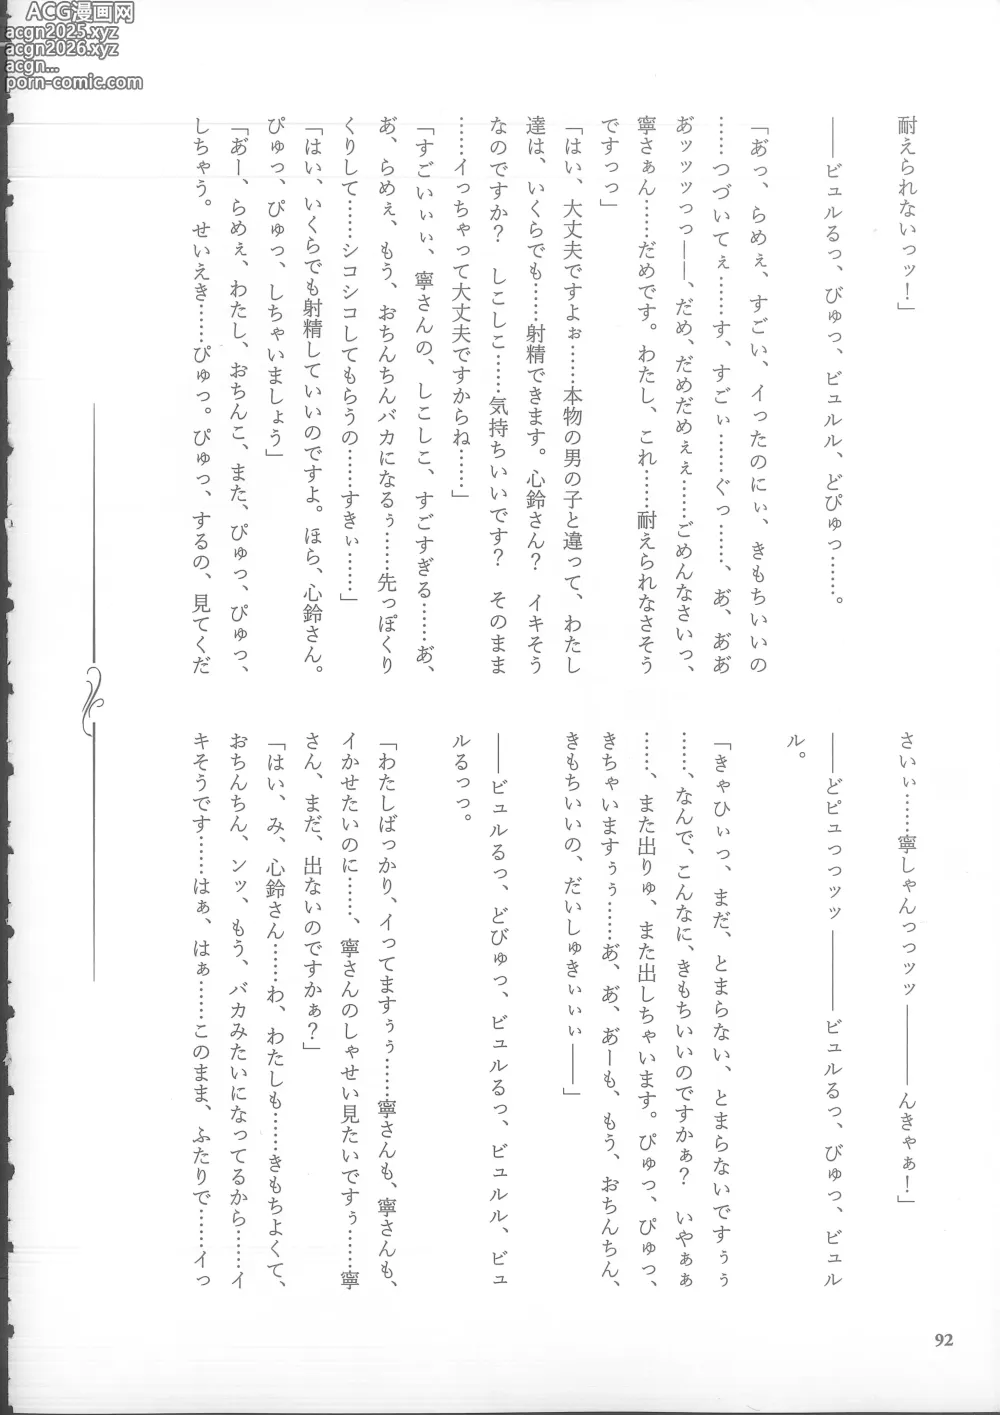 耐えられないっッ！」
――ビュルるっ、びゅっ、ビュルル、どぴゅっ……。
「あ゛っ、らめぇ、すごい、イったのにぃ、きもちいいの
……つづいてぇ……す、すごぃ……ぐっ……、あ゛、あ゛あ゛
あ゛ッッッっっ――、だめ、だめだめぇぇ……ごめんなさいっ、
寧さぁん……だめです。わたし、これ……耐えられなさそう
ですっっ」
「はい、大丈夫ですよぉ……本物の男の子と違って、わたし
達は、いくらでも……射精できます。心鈴さん？　イキそう
なのですか？　しこしこ……気持ちいいです？　そのまま
……イっちゃって大丈夫ですからね……」
「すごいぃぃ、寧さんの、しこしこ、すごすぎる……あ゛、
あ゛、らめぇ、もう、おちんちんバカになるぅ……先っぽくり
くりして……シコシコしてもらうの……すきぃ……」
「はい、いくらでも射精していいのですよ。ほら、心鈴さん。
ぴゅっ、ぴゅっ、しちゃいましょう」
「あ゛ー、らめぇ、わたし、おちんこ、また、ぴゅっ、ぴゅっ、
しちゃう。せいえき……ぴゅっ。ぴゅっ、するの、見てくだ
さいぃ……寧しゃんっっッッ――――んきゃぁ！」
――どピュっっッッ――――ビュルるっ、びゅっ、ビュル
ル。
「きゃひぃっ、まだ、とまらない、とまらないですぅぅ
……、なんで、こんなに、きもちいいのですかぁ？　いやぁぁ
……、また出りゅ、また出しちゃいます。ぴゅっ、ぴゅっ、
きちゃいますぅぅ……あ゛、あ゛、あ゛ーも、もう、おちんちん、
きもちいいの、だいしゅきぃぃぃ――」
――ビュルるっ、どびゅっ、ビュルるっ、ビュルル、ビュ
ルるっっ。
「わたしばっかり、イってますぅぅ……寧さんも、寧さんも、
イかせたいのに……、寧さんのしゃせい見たいですぅ……寧
さん、まだ、出ないのですかぁ？」
「はい、み、心鈴さん……わ、わたしも……きもちよくて、
おちんちん、ンッ、もう、バカみたいになってるから……イ
キそうです……はぁ、はぁ……このまま、ふたりで……イっ
92
ACG漫画网
acgn2025.xyz
acgn2026.xyz
acgn...
porn-comic.com